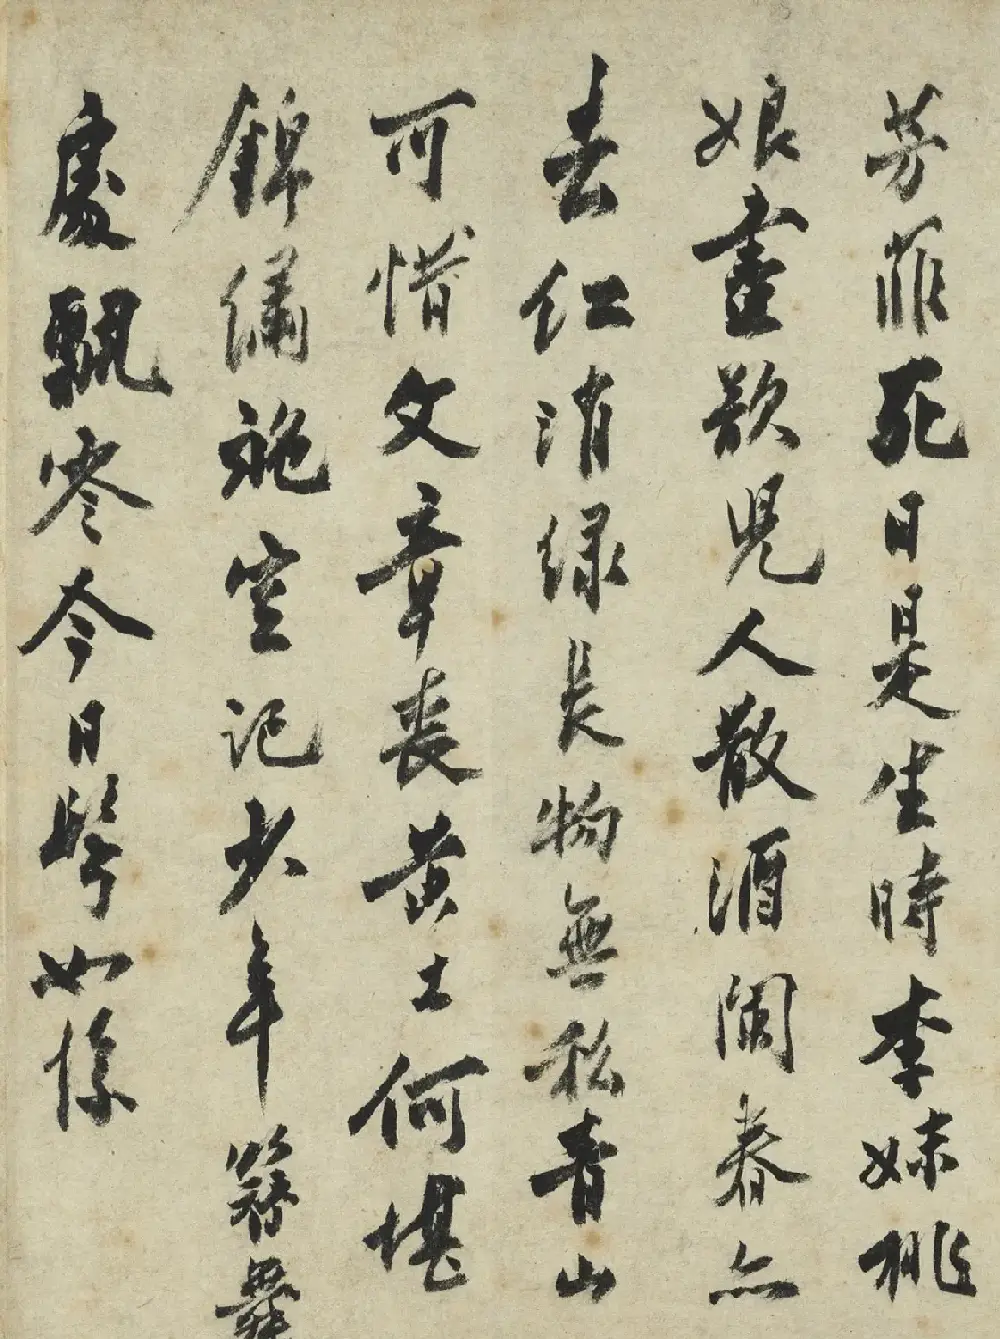 芳菲死日是生時李妹桃
娘盡欲兒人散酒闌春亦
去紅消綠長物無私青山
可惜文章喪黃土何堪
錦繡施空記少年簪舞
處飄零今日鬢如絲